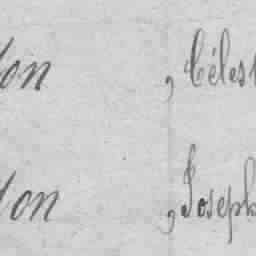 on , Céles
on , Joseph